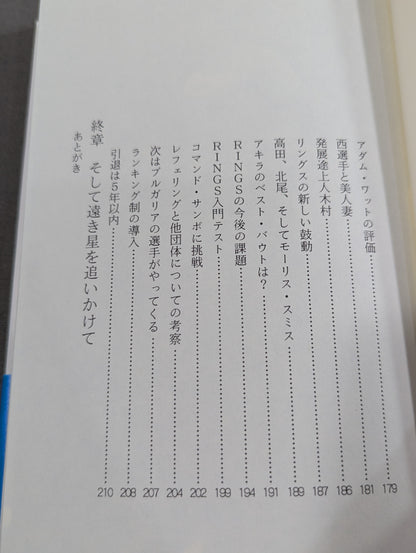 アダム・ワットの評価……179
西選手と美人妻……181
発展途上人木村……186
リングスの新しい鼓動……187
高田、北尾、そしてモーリス・スミス……189
アキラのベスト・バウトは？……191
RINGSの今後の課題……194
RINGS入門テスト……199
コマンド・サンボに挑戦……202
レフェリングと他団体についての考察……204
次はブルガリアの選手がやってくる……207
ランキング制の導入……208
引退は5年以内……210
終章　そして遠き星を追いかけて
あとがき